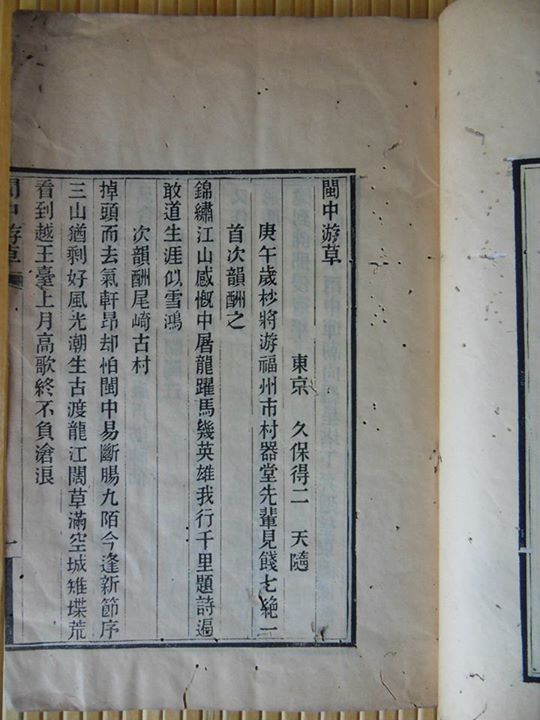 閩中游草
東京　久保得二　天隨
庚午歲杪將游福州市村器堂先輩見餞七絕一
首次韻酬之
錦繡江山感慨中屠龍躍馬幾英雄我行千里題詩遍
敢道生涯似雪鴻
次韻酬尾崎古村
掉頭而去氣軒昂却怕閩中易斷腸九陌今逢新節序
三山猶剩好風光潮生古渡龍江闊草滿空城雉堞荒
看到越王臺上月高歌終不負滄浪
閩中游草
一